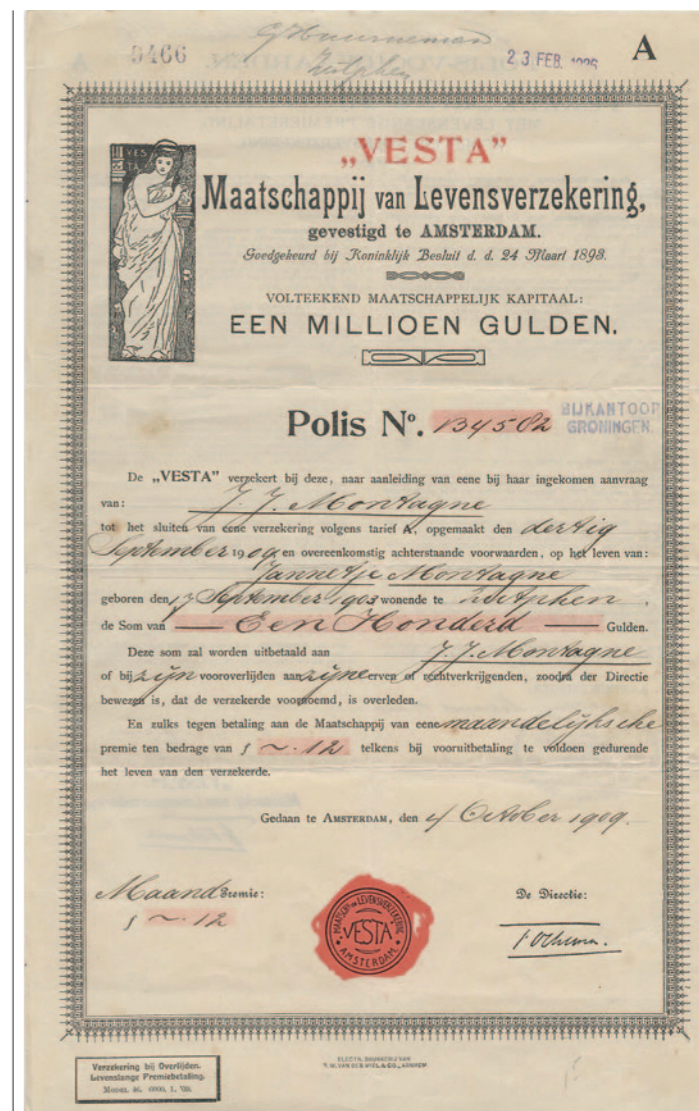 0466
Zutphen
23 FEB.
A
VESTA
„VESTA”
Maatschappij van Levensverzekering,
gevestigd te AMSTERDAM.
Goedgekeurd bij Koninklijk Besluit d. d. 24 Maart 1893.
VOLTEEKEND MAATSCHAPPELIJK KAPITAAL:
EEN MILLIOEN GULDEN.
Polis No. 134582
BIJKANTOOR
GRONINGEN
De „VESTA” verzekert bij deze, naar aanleiding van eene bij haar ingekomen aanvraag
van: J. J. Montagne
tot het sluiten van eene verzekering volgens tarief A, opgemaakt den dertig
September 1909 en overeenkomstig achterstaande voorwaarden, op het leven van:
Jannetje Montagne
geboren den 17 September 1903 wonende te Zutphen,
de Som van — Een Honderd — Gulden.
Deze som zal worden uitbetaald aan J. J. Montagne
of bij zijn vooroverlijden aan zijne erven of rechtverkrijgenden, zoodra der Directie
bewezen is, dat de verzekerde voornoemd, is overleden.
En zulks tegen betaling aan de Maatschappij van eene maandelijksche
premie ten bedrage van f ~.12 telkens bij vooruitbetaling te voldoen gedurende
het leven van den verzekerde.
Gedaan te AMSTERDAM, den 4 October 1909.
Maand premie:
f ~.12
MAATSCH. VAN LEVENSVERZEKERING
VESTA
AMSTERDAM
De Directie:
Verzekering bij Overlijden.
Levenslange Premiebetaling.
ELECTR. DRUKKERIJ VAN
T. W. VAN DER WIEL & CO., ARNHEM